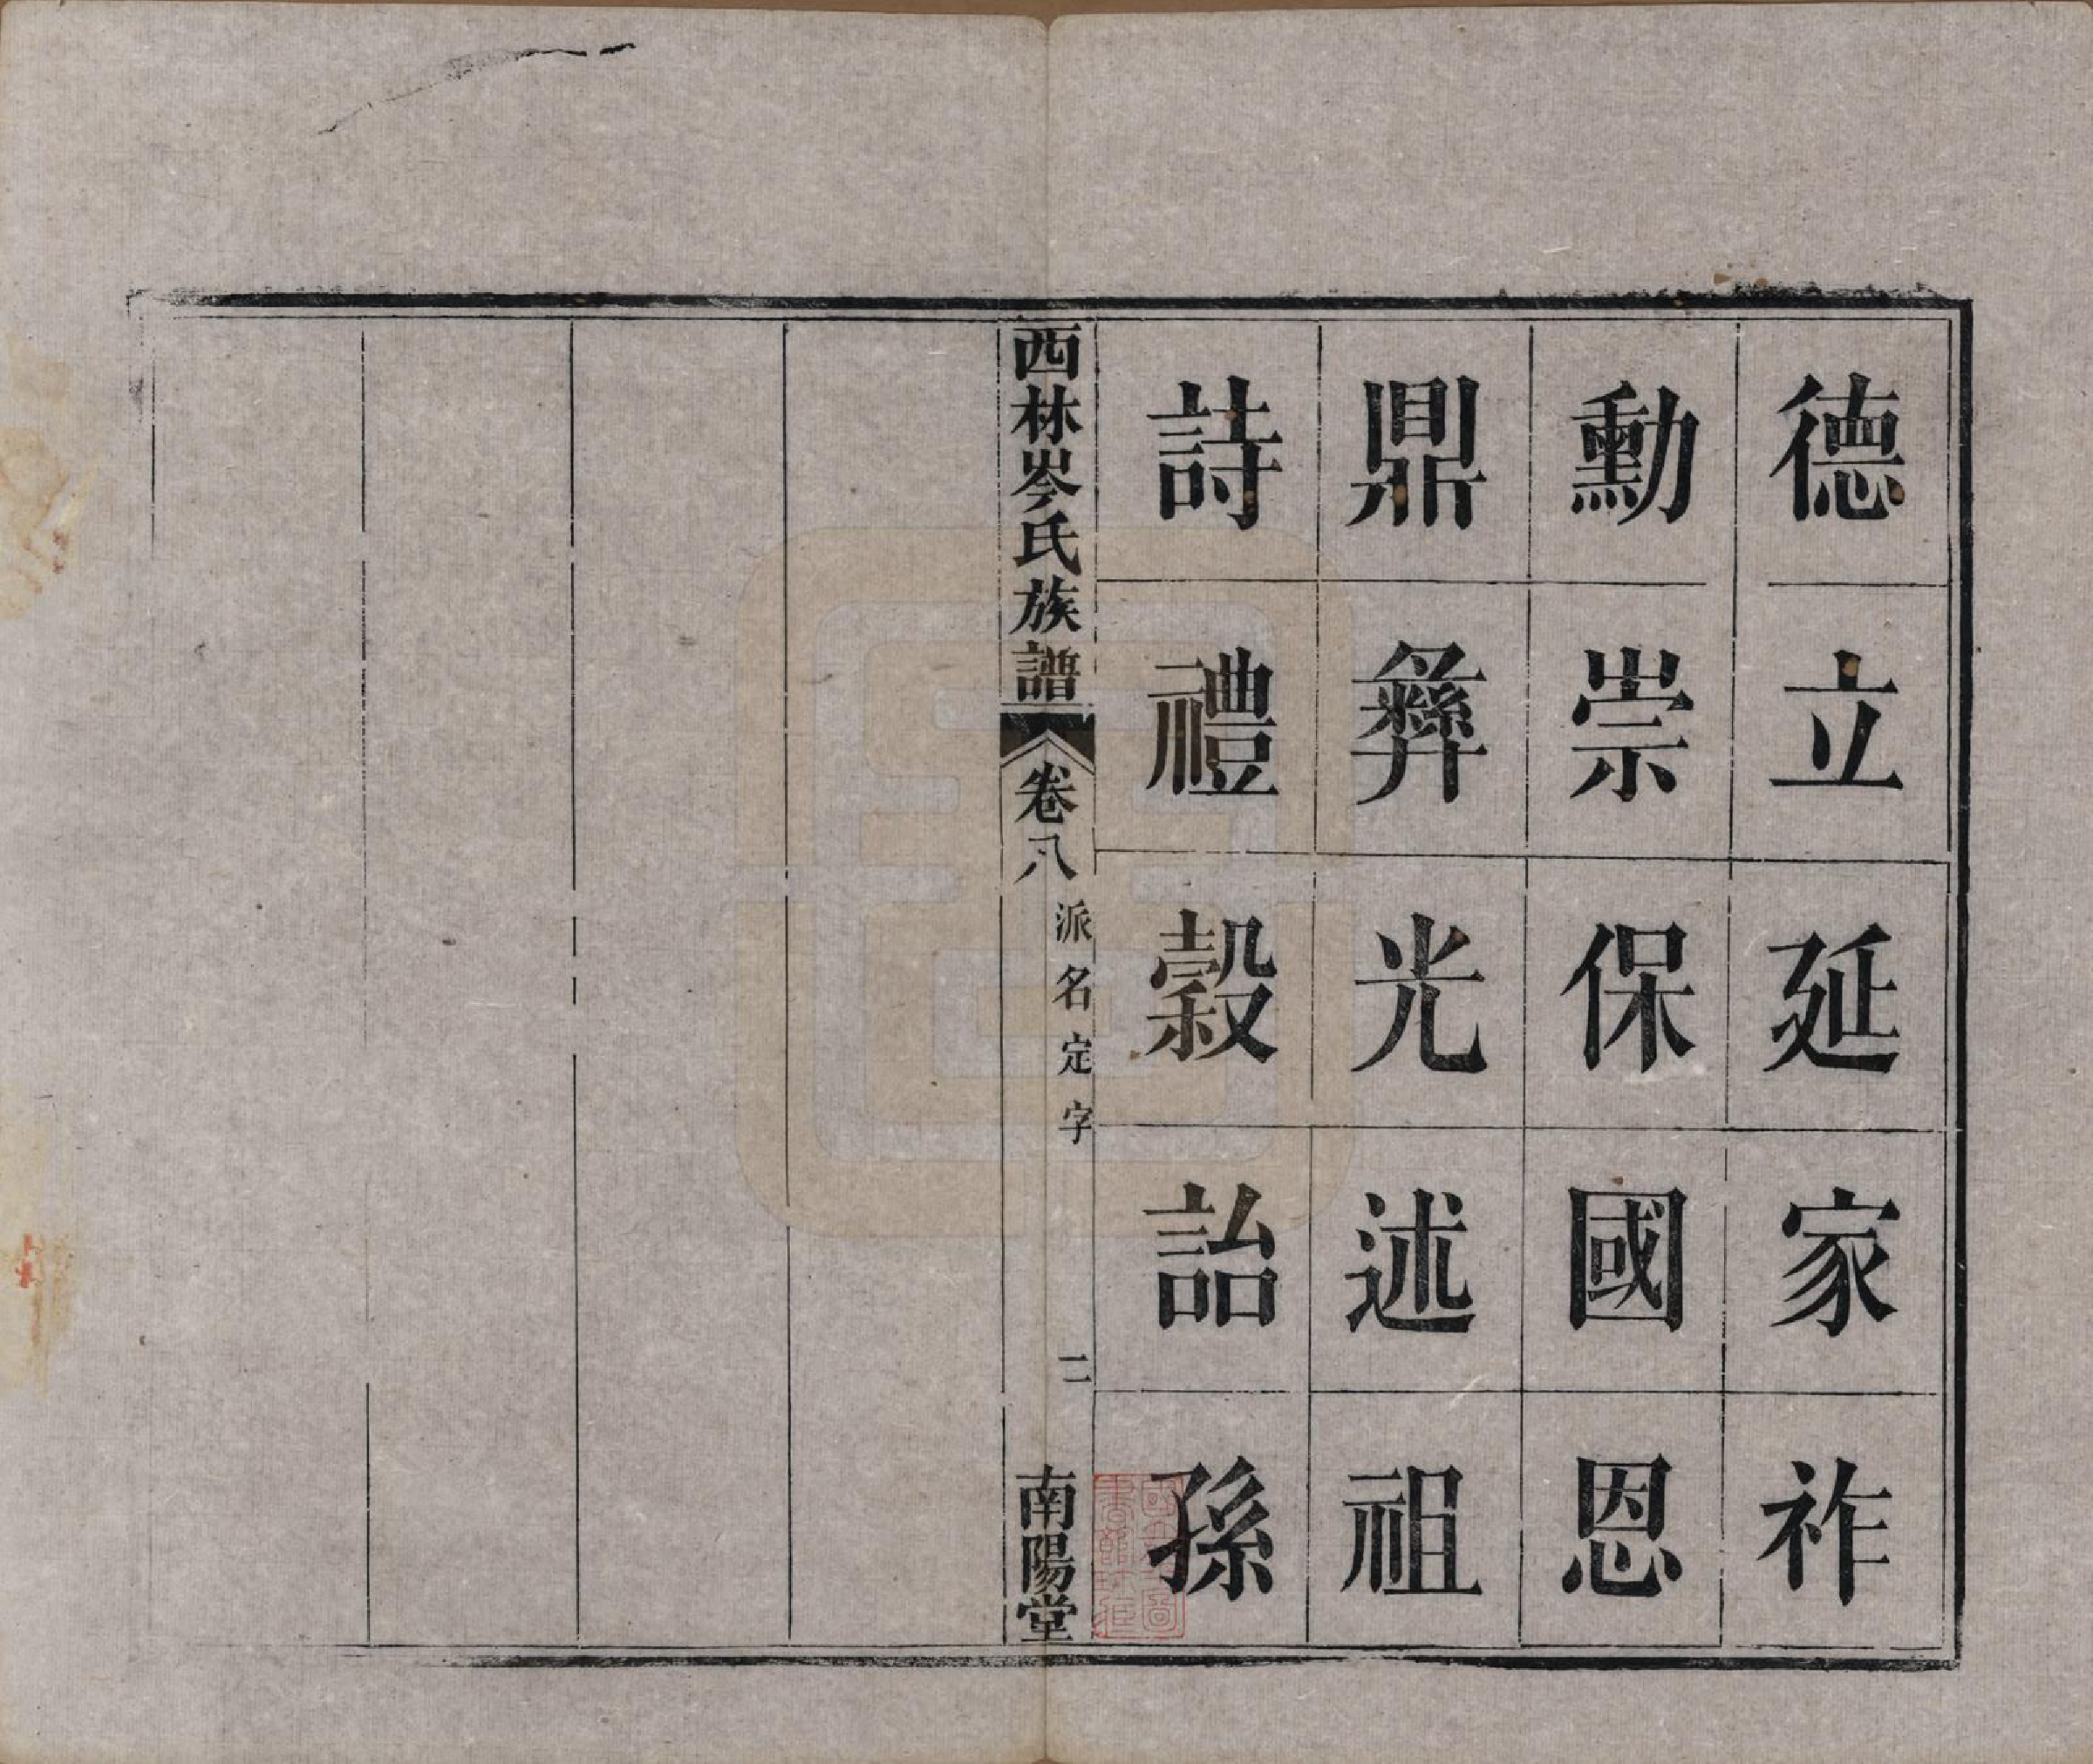 德立延家祚
勳崇保國恩
鼎彝光述祖
詩禮穀詒孫
西林岑氏族譜
卷八
派名定字
二
南陽堂